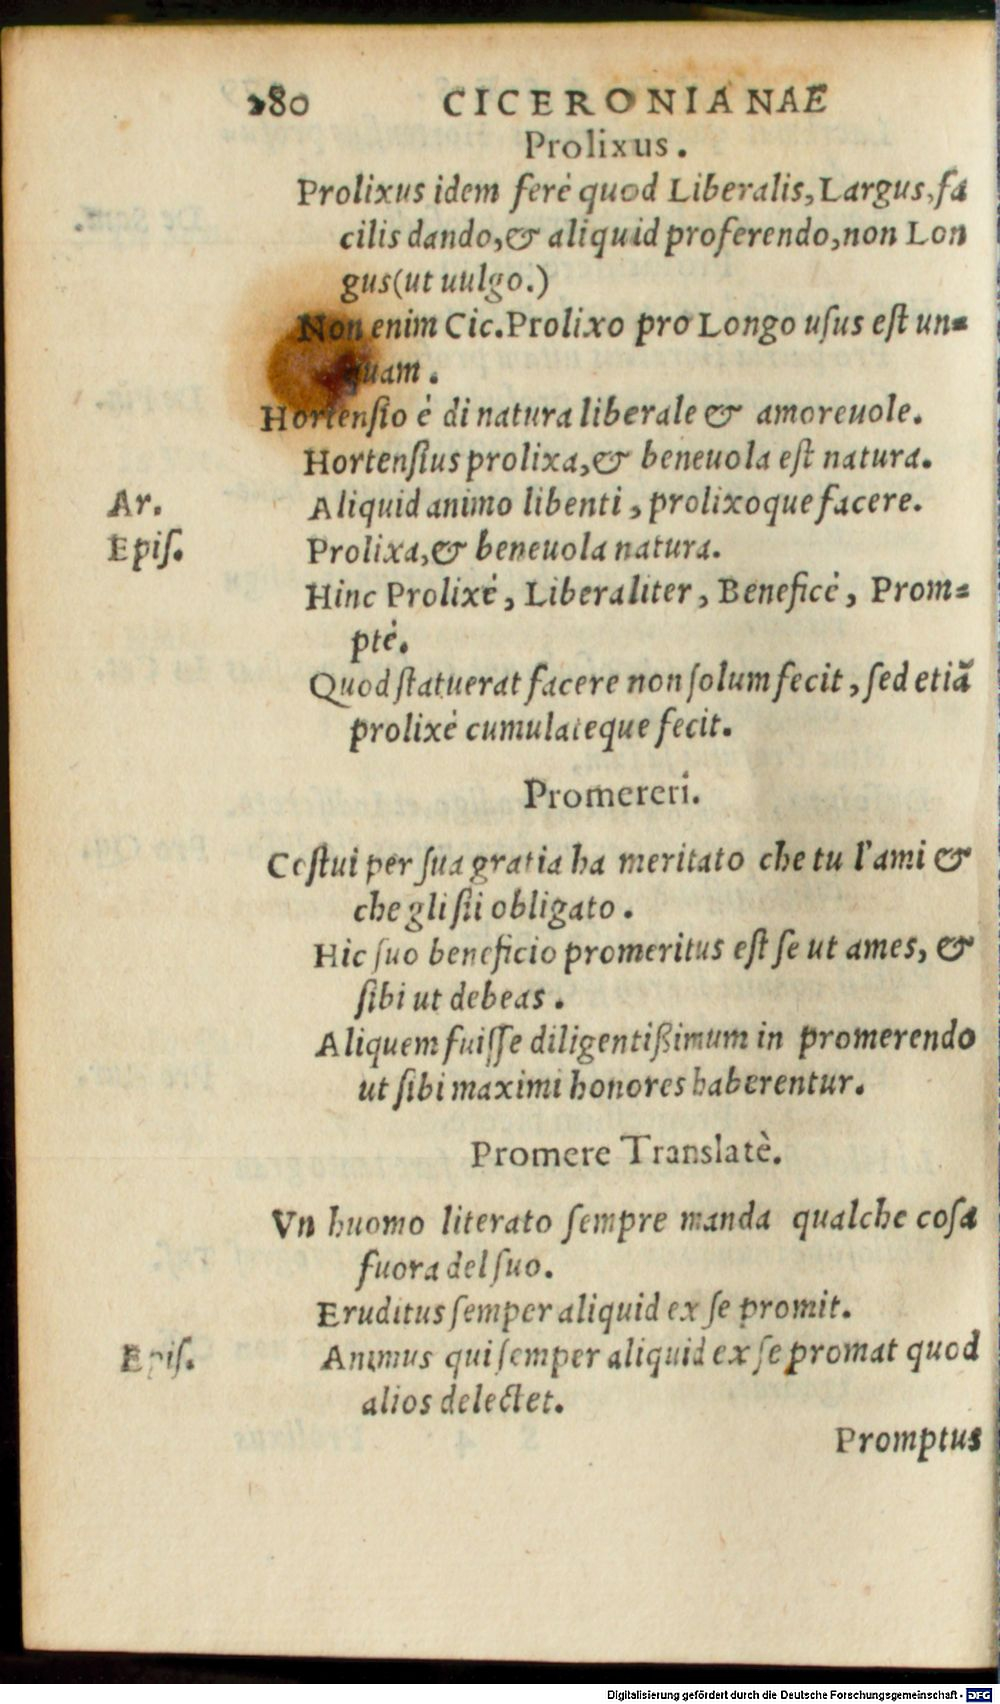 280 CICERONIANAE
Prolixus.
Prolixus idem ferè quod Liberalis, Largus, fa
cilis dando, & aliquid proferendo, non Lon
gus (ut uulgo.)
Non enim Cic. Prolixo pro Longo uſus eſt un=
quam.
Hortenſio è di natura liberale & amoreuole.
Hortenſius prolixa, & beneuola eſt natura.
Ar. Aliquid animo libenti, prolixoque facere.
Epiſ. Prolixa, & beneuola natura.
Hinc Prolixè, Liberaliter, Beneficè, Prom=
ptè.
Quod ſtatuerat facere non ſolum fecit, ſed etiã
prolixè cumulateque fecit.
Promereri.
Coſtui per ſua gratia ha meritato che tu l'ami &
che gli ſii obligato.
Hic ſuo beneficio promeritus eſt ſe ut ames, &
ſibi ut debeas.
Aliquem fuiſſe diligentiſſimum in promerendo
ut ſibi maximi honores haberentur.
Promere Translatè.
Vn huomo literato ſempre manda qualche coſa
fuora del ſuo.
Eruditus ſemper aliquid ex ſe promit.
Epiſ. Animus qui ſemper aliquid ex ſe promat quod
alios delectet.
Promptus
Digitalisierung gefördert durch die Deutsche Forschungsgemeinschaft - DFG